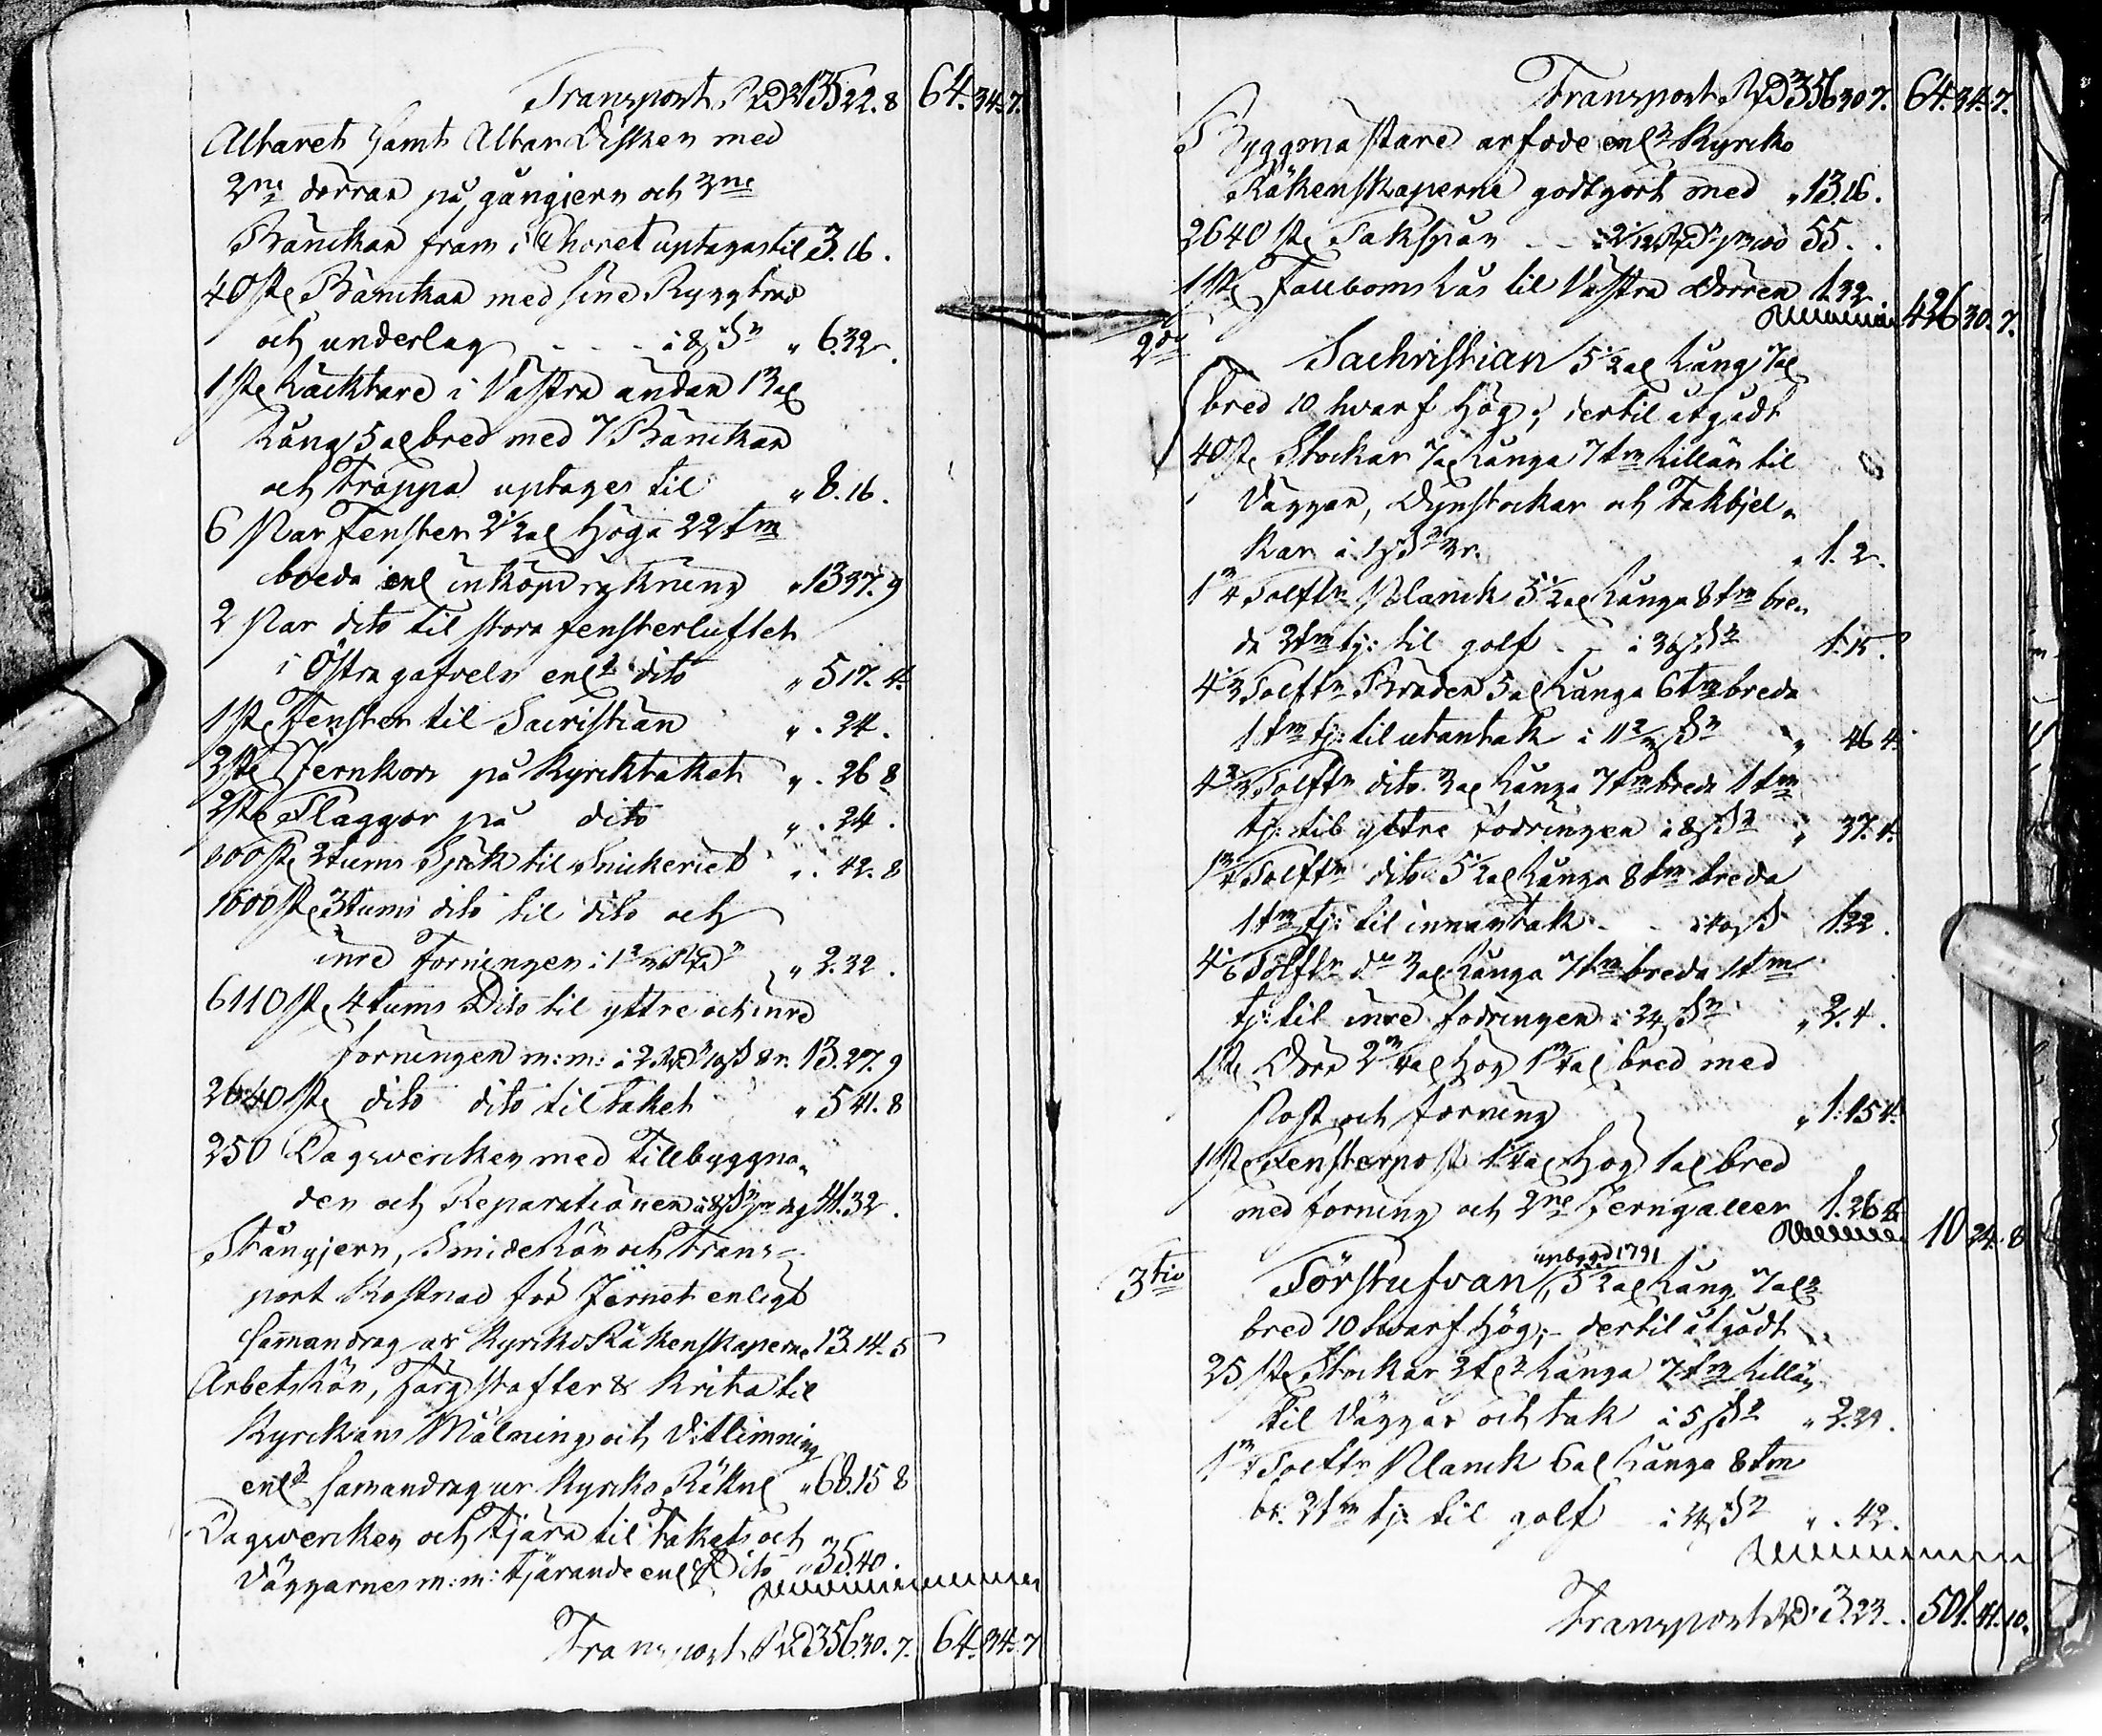 Transport RD 135 22. 8 64. 34. 7.
Altaret samt Altar Disken med
2ne dörrar på gångjern och 3ne
Bänckar fram i Choret uptagas til 3. 16.
40 st. Bänckar med sine Ryggbräd
och underlag - - - à 8 s " 6. 32.
1 st. Läcktare i Västra ändan 13 al
Lång 5 al bred med 7 Bänckar
och Trappa uptages til " 8. 16.
6 Par Fenster 2½ al höga 22 tm
breda enl inköps räkning " 13 37. 9
2 Par dito til stora fensterluftet
i Östra gafveln enl dito " 5 17. 4.
1 st. Fenster til Sacristian " . 24.
2 st. Jernkors på Kyrcktaket " . 26 8
2 st. Flaggor på dito " . 24.
800 st. 2 tums Spik til Snickeriet " . 42. 8
1600 st. 3 tums dito til dito och
inre Forningen à 1⅔ RD " 2. 32.
6110 st. 4 tums Dito til yttre och inre
forningen m: m: à 2 RD 10 s 8 r. 13. 27. 9
2640 st. dito dito til taket " 5 41. 8
250 Dagswercken med Tillbyggna-
den och Reparationen à 8 s pr dag 41. 32.
Stångjern, Smidelön och Trans=
port kostnad för Järnet enligt
Samandrag ur Kyrcko Räkenskaperne 13. 14. 5
Arbetslön, Färgstofter & Krita til
Kyrckans Målning och Vitlimning
enl Samandrag ur Kyrcko Räkne " 68. 15 8
Dagswercken och Tjära til Takets och
Väggarnes m: m: tjärande enl Dito " 35. 40.
Transport RD 356. 30. 7. 64. 34. 7
Transport RD 356 30 7. 64. 34. 7.
Byggmästare arfvode enl Kyrcko
Räkenskaperne godtgört med " 13. 16.
2640 st. Takspån - - à 2 1/12 RD pr 100 55. .
1 st. Falleboms Lås til Västra Dörren 1. 32
426 30. 7.
2do Sachristian 5½ al Lång 7 al
bred 10 hvarf hög; dertil åtgådt
40 st. Stockar 7 al Långa 7 tm Lillän til
Väggar, Dynstockar och Takbjel-
kar à 1 s 3 r. " 1. 2.
1¾ Tolftr Planck 5½ al Långa 8 tm bre-
da 2 tm tj: til golf - à 36 s 1. 15.
4⅓ Tolftr Bräder 5 al Långa 6 tm breda
1 tm tj: til utantak à 11⅔ s " 46 4.
4⅔ Tolftr dito 3 al Långa 7 tm breda 1 tm
tj: til yttre fodringen à 8 s " 37. 4.
1¾ Tolftr dito 5½ al Långa 8 tm breda
1 tm tj: til innantak - - à 40 s 1. 22.
4⅙ Tolftr do 3 al Långa 7 tm breda 1 tm
tj: til inre fodringen à 24 s " 2. 4.
1 st. Dörr 2¾ al hög 1¾ al bred med
Post och forning " 1. 15 4.
1 st. Fensterpost 1¼ al hög 1 al bred
med forning och 2ne Jerngaller 1. 26 8
10 24. 8
upbygd 1791
3tio Förstufvan, 5½ al Lång 7 al
bred 10 hvarf hög; - dertil åtgådt
25 st. Stockar 7 al Långa 7 tm Lillän
til Väggar och tak à 5 s " 2. 29.
1¾ Tolftr Planck 6 al Långa 8 tm
br. 2 tm tj: til golf à 24 s " . 42.
Transport RD 3. 23. 501. 41. 10.